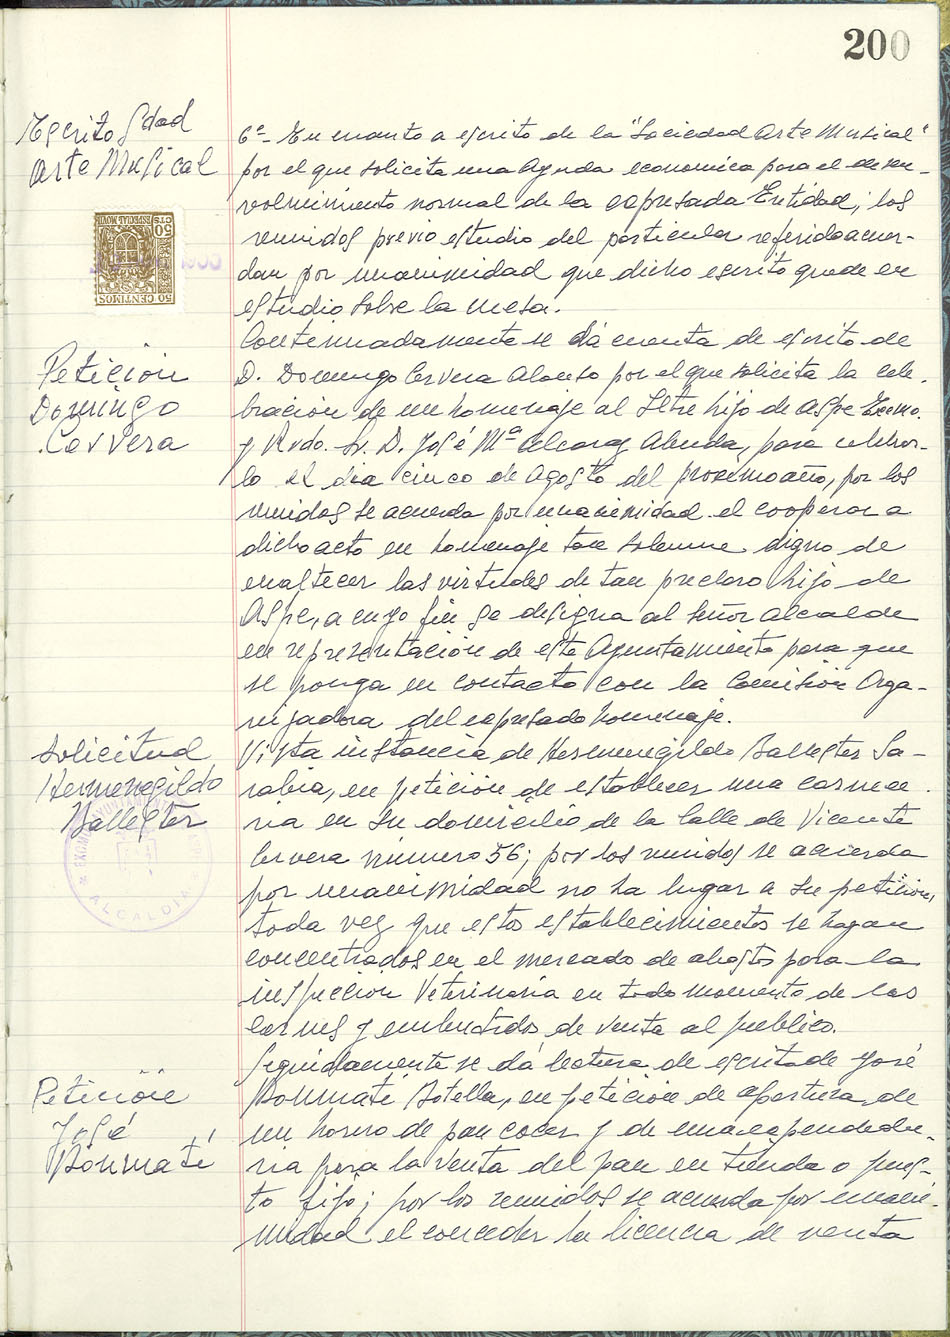 200
Escrito Sdad
Arte Musical
6º- En cuanto a escrito de la "Sociedad Arte Musical"
por el que solicita una Ayuda economica para el desen-
volvimiento normal de la expresada Entidad; los
reunidos previo estudio del particular referido acuer-
dan por unanimidad que dicho escrito quede en
estudio sobre la mesa.
50 CENTIMOS
ESPECIAL MOVIL
50 CTS
Petición
Domingo
Cervera
Continuadamente se dá cuenta de escrito de
D. Domingo Cervera Alonso por el que solicita la cele-
bración de un homenaje al Iltre hijo de Aspe Excmo.
y Rvdo. Sr. D. José Mª Alcaraz Alenda, para celebrar-
lo el dia cinco de Agosto del proximo año, por los
reunidos se acuerda por unanimidad el cooperar a
dicho acto en homenaje tan solemne digno de
enaltecer las virtudes de tan preclaro hijo de
Aspe, a cuyo fin se designa al Señor Alcalde
en representación de este Ayuntamiento para que
se ponga en contacto con la Comisión Orga-
nizadora del expresado homenaje.
Solicitud
Hermenegildo
Ballester
ALCALDIA
Vista instancia de Hermenegildo Ballester Sa-
rabia, en petición de establecer una carnice-
ria en su domicilio de la Calle de Vicente
Cervera número 56; por los reunidos se acuerda
por unanimidad no ha lugar a su petición,
toda vez que estos establecimientos se hayan
concentrados en el mercado de abastos para la
inspección Veterinaria en todo momento de las
carnes y embutidos de venta al publico.
Petición
José
Bonmatí
Seguidamente se dá lectura de escrito de José
Bonmatí Botella, en petición de apertura de
un horno de pan cocer y de una expendedu-
ria para la venta del pan en tienda o pues-
to fijo; por los reunidos se acuerda por unani-
midad el conceder la licencia de venta